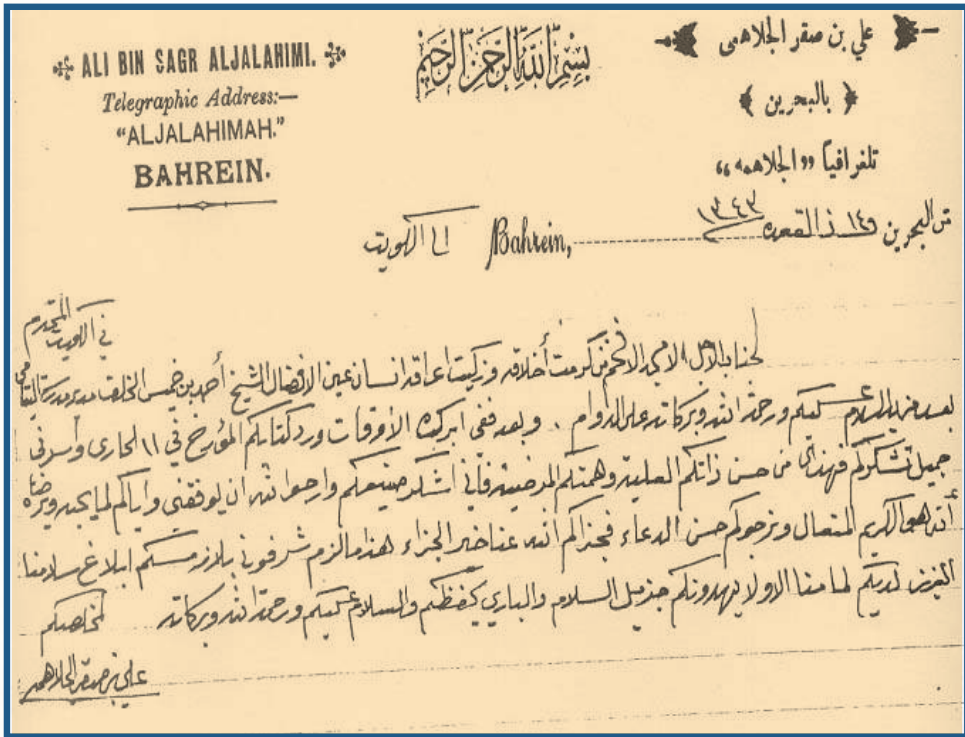 ALI BIN SAGR ALJALAHIMI.
Telegraphic Address:—
“ALJALAHIMAH.”
BAHREIN.
بسم الله الرحمن الرحيم
علي بن صقر الجلاهمى
بالبحرين
تلغرافياً «الجلاهمه»
من البحرين ١٤ ذ القعده ١٣٤٣
Bahrein,
الى الكويت
المحترم
في الكويت
لجناب الاجل الامجد الافخم من كرمت أخلاقه وزكيت اعراقه انسان عين الافضال الشيخ أحمد بن خميس الخلف مدير مدرسة
بعد مزيد السلام عليكم ورحمة الله وبركاته على الدوام . وبعد ففي ابرك الأوقات ورد كتابكم المؤرخ في ١١ الجارى وسرني
جميل تشكركم فهذا من حسن ذاتكم العلية وهمتكم المرضية فأني اشكر صنيعكم وارجوا الله ان يوفقني وأياكم لما يحبه ويرضاه
أنه هو الكريم المتعال ونرجوكم حسن الدعاء فجزاكم الله عنا خير الجزاء هذا مالزم شرفوني بلازم مسكم ابلاغ سلامنا
العزيز لديكم كما منا الاولاد يهدونكم جزيل السلام والباري يحفظكم والسلام عليكم ورحمة الله وبركاته
مخلصكم
علي بن صقر الجلاهمه